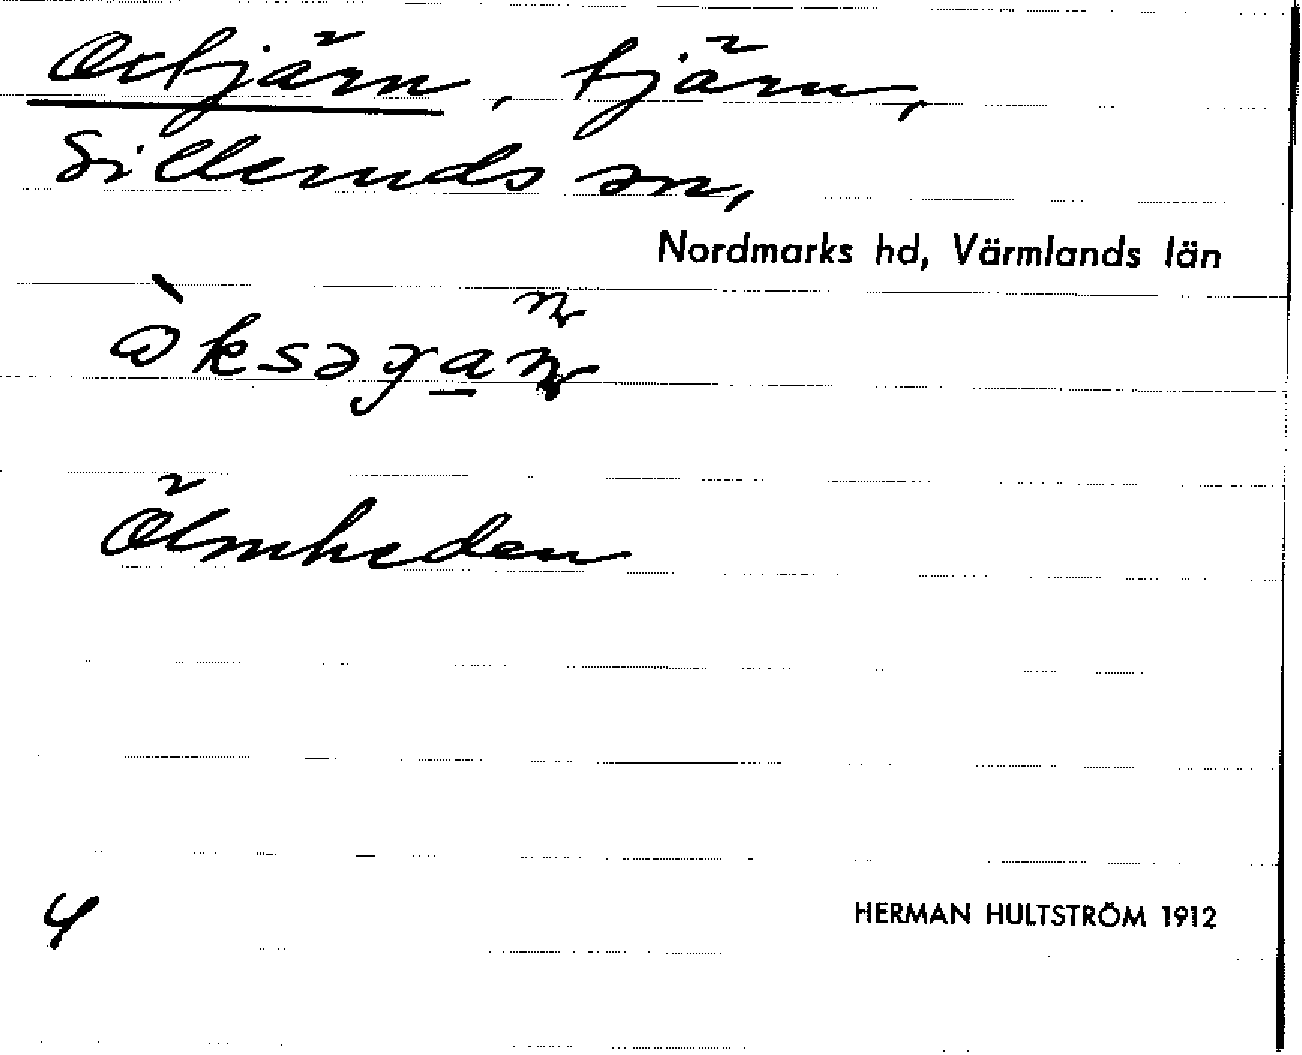 Oxtjärn, tjärn,
Silleruds sn,
Nordmarks hd, Värmlands län
Ölmheden
4
HERMAN HULTSTRÖM 1912